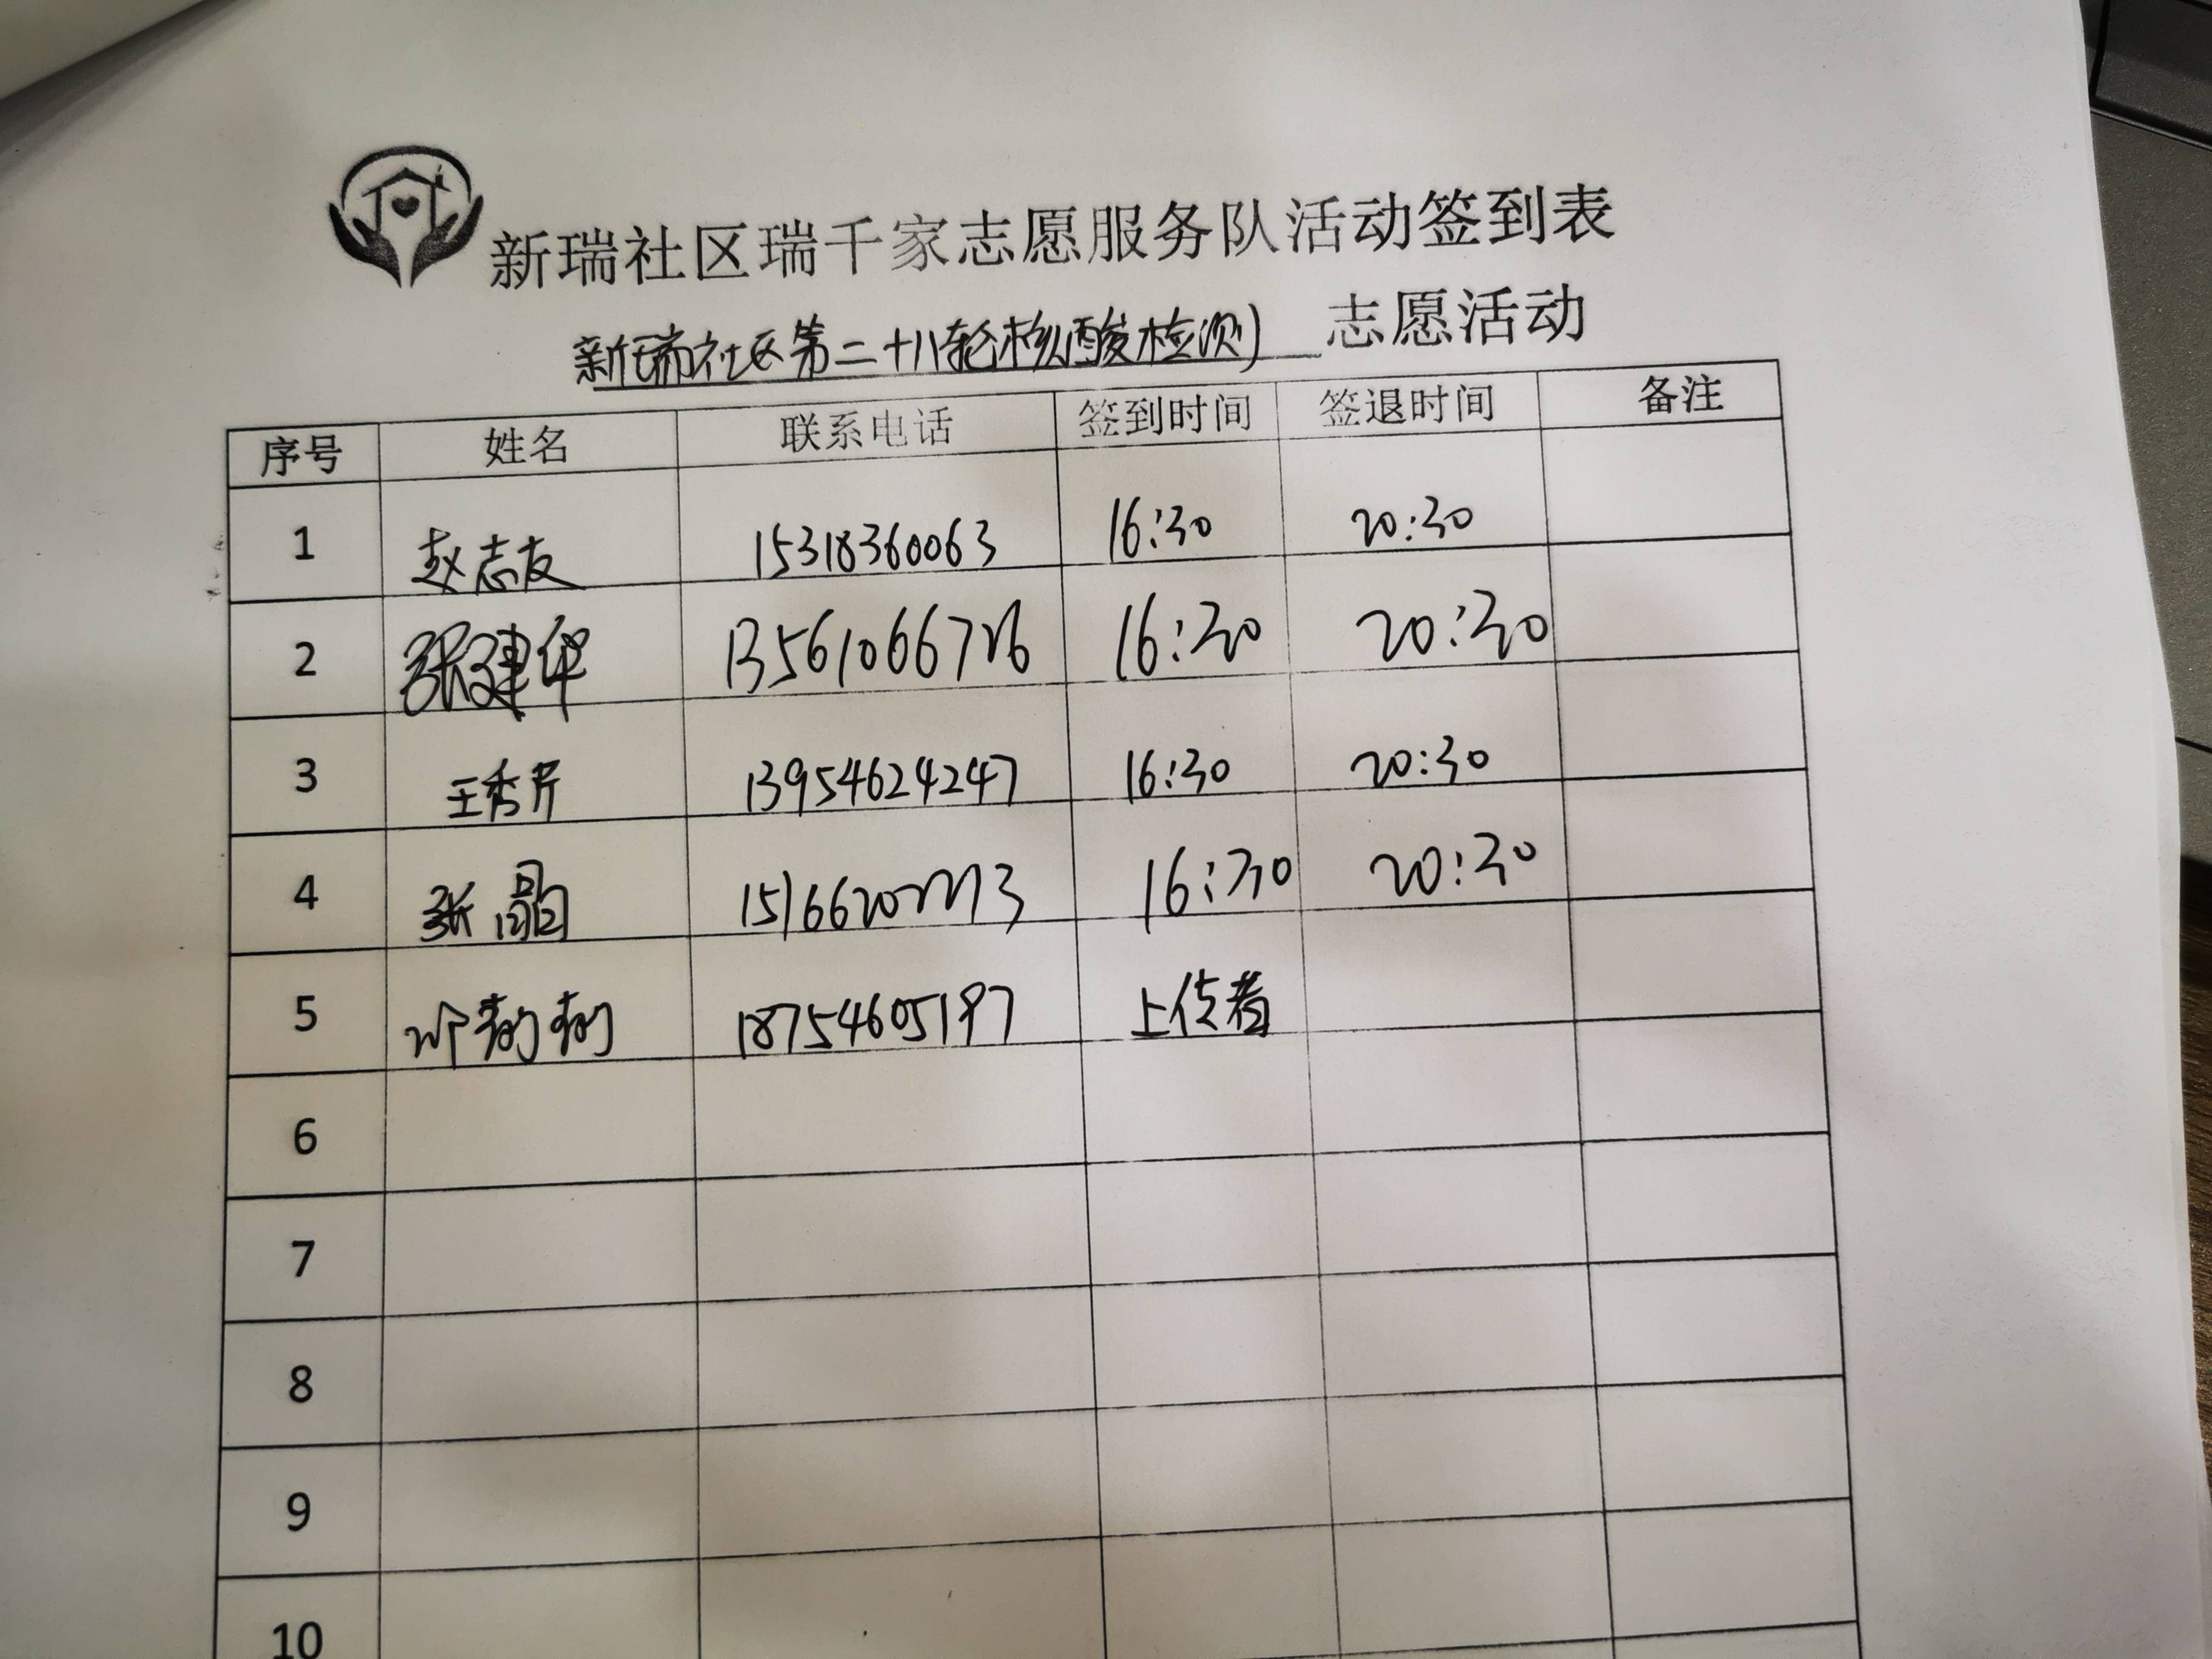 新瑞社区瑞千家志愿服务队活动签到表
新瑞社区第二十八轮核酸检测 志愿活动
序号 姓名 联系电话 签到时间 签退时间 备注
1 赵志友 15318360063 16:30 20:30
2 张建华 13561066726 16:30 20:30
3 王秀芹 13954624247 16:30 20:30
4 张晶 16:30 20:30
5 18754605197 上传者
6
7
8
9
10